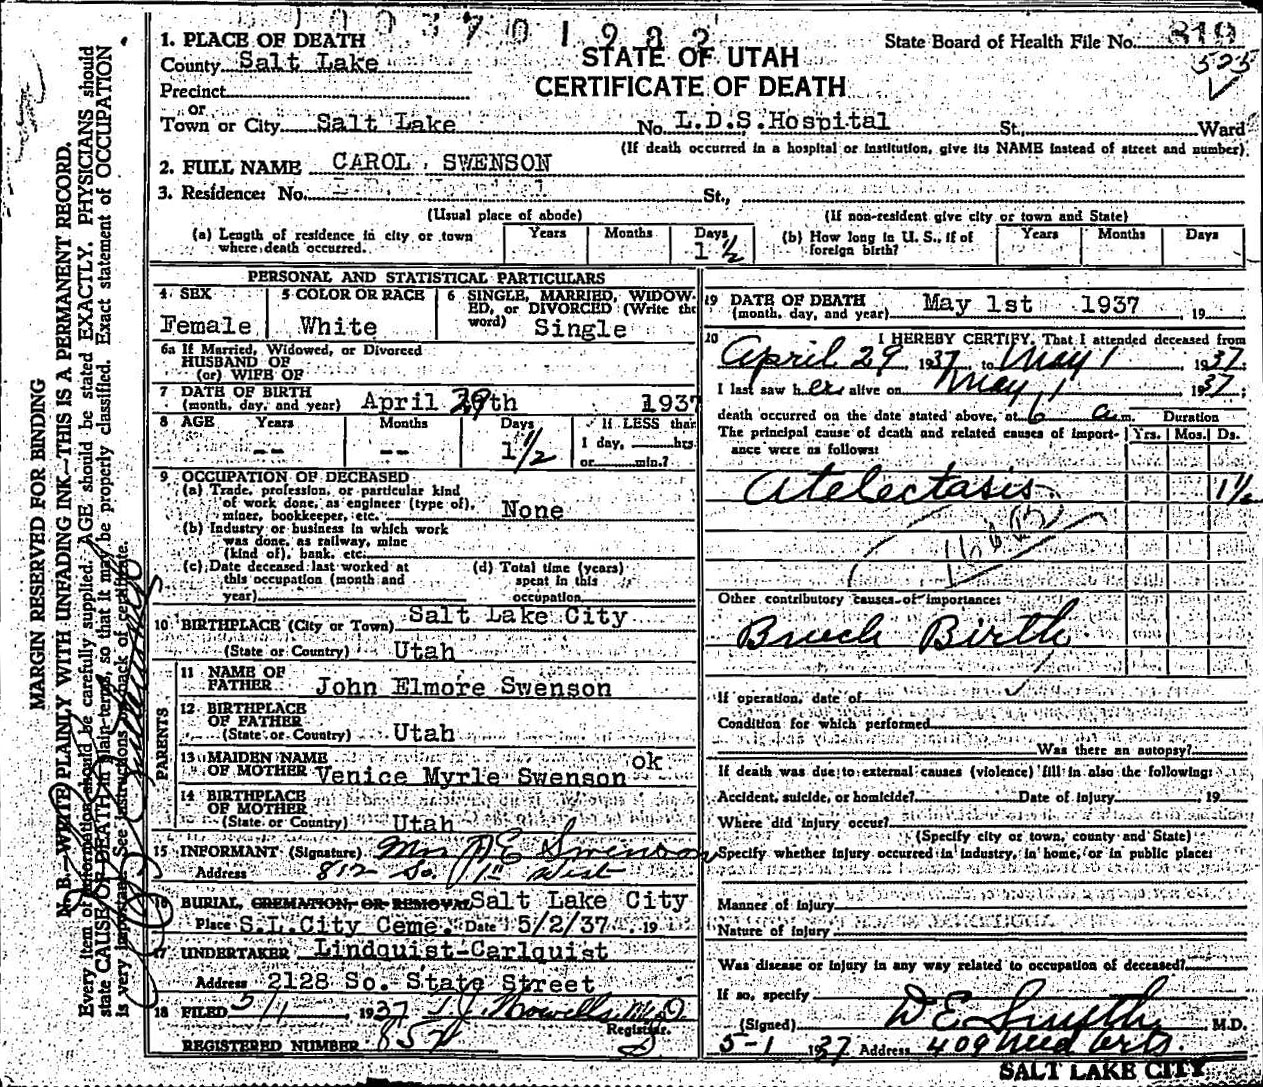 1. PLACE OF DEATH
STATE OF UTAH
CERTIFICATE OF DEATH
State Board of Health File No. 819
525
County Salt Lake
Precinct
or
Town or City Salt Lake No. L.D.S. Hospital St., Ward
(If death occurred in a hospital or institution, give its NAME instead of street and number).
2. FULL NAME CAROL SWENSON
3. Residence: No. St.,
(Usual place of abode) (If non-resident give city or town and State)
(a) Length of residence in city or town where death occurred. Years Months Days 1½
(b) How long in U. S., if of foreign birth? Years Months Days
PERSONAL AND STATISTICAL PARTICULARS
4 SEX Female
5 COLOR OR RACE White
6 SINGLE, MARRIED, WIDOWED, or DIVORCED (Write the word) Single
6a If Married, Widowed, or Divorced
HUSBAND OF
(or) WIFE OF
7 DATE OF BIRTH
(month, day, and year) April 29th 1937
8 AGE Years Months Days If LESS than
-- -- 1½ 1 day, hrs.
or min.?
9 OCCUPATION OF DECEASED
(a) Trade, profession, or particular kind
of work done, as engineer (type of),
miner, bookkeeper, etc. None
(b) Industry or business in which work
was done, as railway, mine
(kind of), bank, etc.
(c) Date deceased last worked at
this occupation (month and
year)
(d) Total time (years)
spent in this
occupation
10 BIRTHPLACE (City or Town) Salt Lake City
(State or Country) Utah
PARENTS
11 NAME OF
FATHER John Elmore Swenson
12 BIRTHPLACE
OF FATHER
(State or Country) Utah
13 MAIDEN NAME
OF MOTHER Venice Myrle Swenson ok
14 BIRTHPLACE
OF MOTHER
(State or Country) Utah
15 INFORMANT (Signature) Mrs J E Swenson
Address 812 So. 1st West
16 BURIAL, CREMATION, OR REMOVAL Salt Lake City
Place S.L.City Ceme. Date 5/2/37 19
17 UNDERTAKER Lindquist-Carlquist
Address 2128 So. State Street
18 FILED 5/1, 1937 M.D.
Registrar.
REGISTERED NUMBER 852
19 DATE OF DEATH
(month, day, and year) May 1st 1937, 19
20 I HEREBY CERTIFY, That I attended deceased from
April 29 1937 to May 1, 1937.
I last saw her alive on May 1, 1937;
death occurred on the date stated above, at 6 a.m.
Duration
The principal cause of death and related causes of importance were as follows: Yrs. Mos. Ds.
Atelectasis 1½
Other contributory causes of importance:
Breech Birth
If operation, date of
Condition for which performed
Was there an autopsy?
If death was due to external causes (violence) fill in also the following:
Accident, suicide, or homicide? Date of injury, 19
Where did injury occur?
(Specify city or town, county and State)
Specify whether injury occurred in industry, in home, or in public place:
Manner of injury
Nature of injury
Was disease or injury in any way related to occupation of deceased?
If so, specify
(Signed) D E Smyth M.D.
5-1 1937 Address 409 Med Arts.
SALT LAKE CITY
MARGIN RESERVED FOR BINDING
N. B.—WRITE PLAINLY WITH UNFADING INK—THIS IS A PERMANENT RECORD.
Every item of information should be carefully supplied. AGE should be stated EXACTLY. PHYSICIANS should
state CAUSE OF DEATH in plain terms, so that it may be properly classified. Exact statement of OCCUPATION
is very important. See instructions on back of certificate.